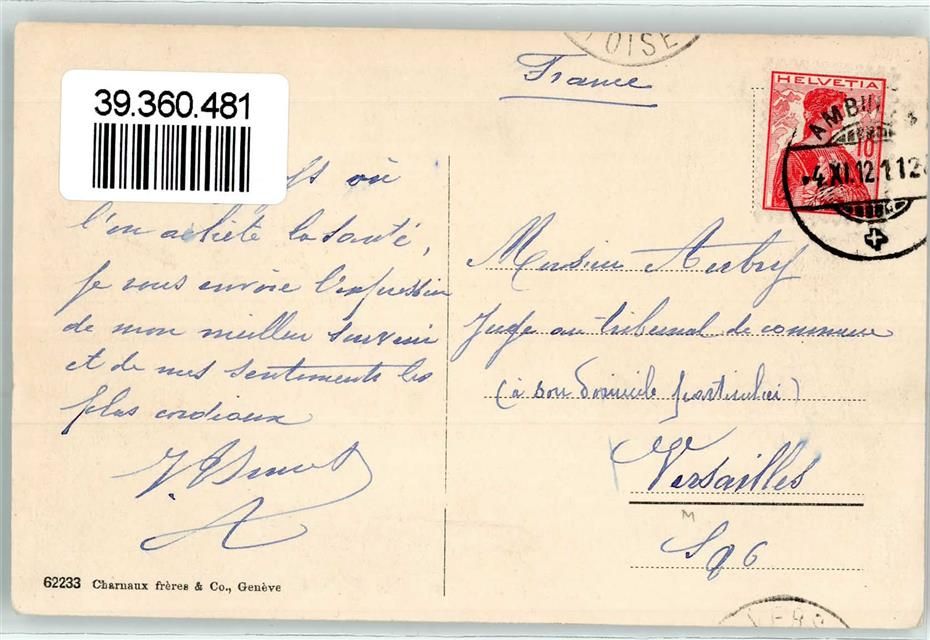 39.360.481
où
l'on achète la santé,
je vous envoie l'expression
de mon meilleur souvenir
et de mes sentiments les
plus cordiaux
62233 Charnaux frères & Co., Genève
OISE
France
HELVETIA
10
AMBU
4 XI.12 112
Monsieur Aubry
Juge au tribunal de commerce
(à son domicile particulier)
Versailles
M
S & O
VERS